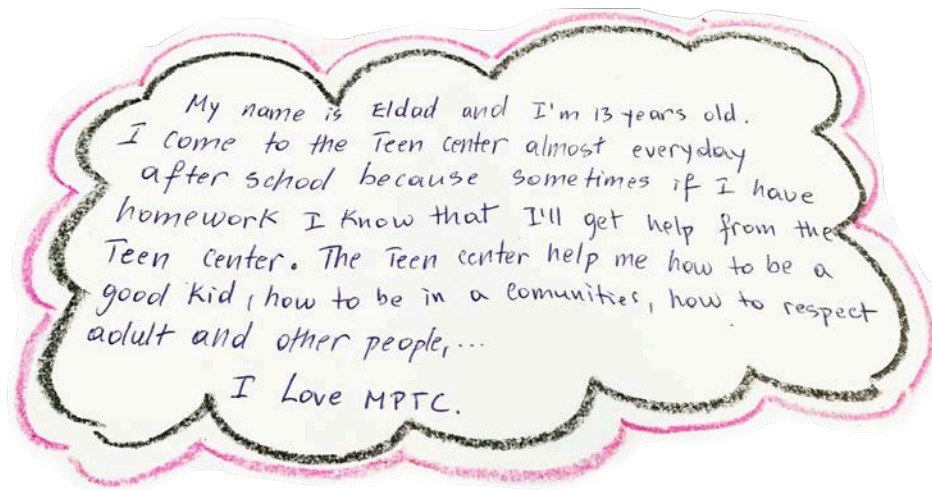 My name is Eldad and I'm 13 years old.
I come to the Teen center almost everyday
after school because sometimes if I have
homework I know that I'll get help from the
Teen center. The Teen center help me how to be a
good kid, how to be in a comunities, how to respect
adult and other people,...
I Love MPTC.